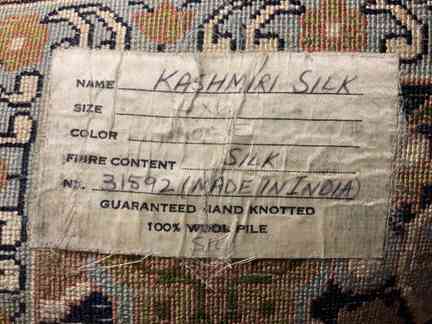 NAME KASHMIRI SILK
SIZE
COLOR
FIBRE CONTENT SILK
No. 31592 (MADE IN INDIA)
GUARANTEED HAND KNOTTED
100% WOOL PILE